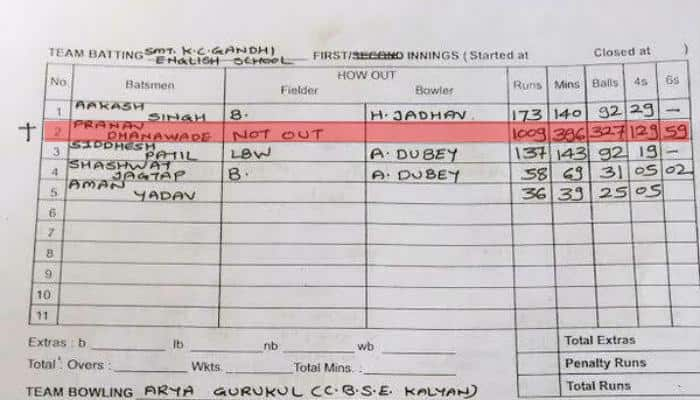 TEAM BATTING SMT. K.C. GANDHI ENGLISH SCHOOL FIRST/SECOND INNINGS (Started at Closed at )
No. Batsmen HOW OUT Fielder Bowler Runs Mins Balls 4s 6s
1 AAKASH SINGH B. H. JADHAV. 173 140 92 29 -
2 PRANAV DHANAWADE NOT OUT 1009 396 327 129 59
3 SIDDHESH PATIL LBW A. DUBEY 137 143 92 19 -
4 SHASHWAT JAGTAP B. A. DUBEY 58 69 31 05 02
5 AMAN YADAV 36 39 25 05
6
7
8
9
10
11
Extras : b lb nb wb Total Extras
Total : Overs : Wkts. Total Mins. : Penalty Runs
Total Runs
TEAM BOWLING ARYA GURUKUL (C.B.S.E. KALYAN)